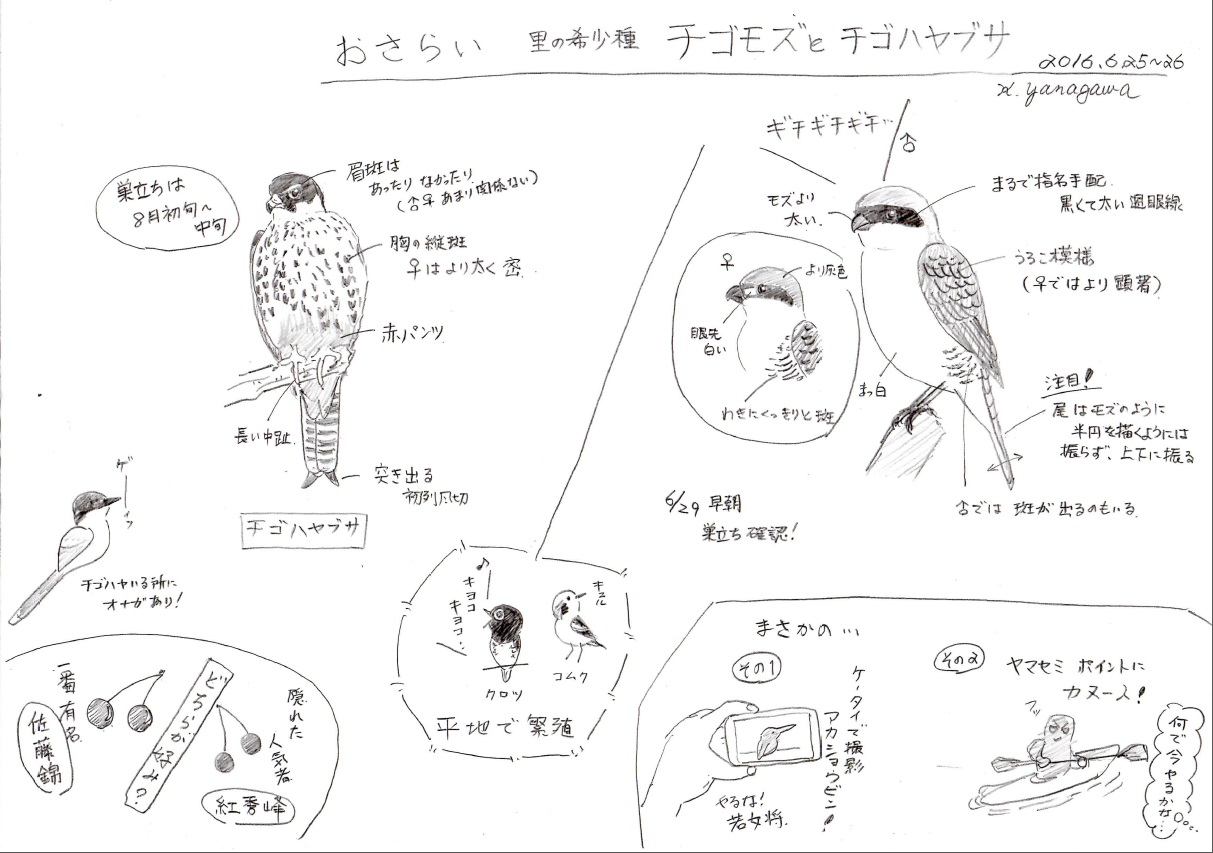 おさらい 里の希少種 チゴモズと チゴハヤブサ
2016.6.25~26
H. yanagawa
巣立ちは
8月初旬~
中旬
眉斑は
あったり なかったり
(♂♀ あまり関係ない)
胸の縦斑
♀はより太く密
赤パンツ
長い中趾
突き出る
初列風切
チゴハヤブサ
ゲ
イッ
チゴハヤいる所に
オナガあり!
ギチギチギチ…
♂
モズより
太い
まるで指名手配
黒くて太い過眼線
うろこ模様
(♀ではより顕著)
♀
より灰色
眼先
白い
わきにくっきりと斑
まっ白
注目!
尾はモズのように
半円を描くようには
振らず、上下に振る
♂では斑が出るのもいる
6/29 早朝
巣立ち確認!
♪
キョコ
キョコ…
キュル
クロツ
コムク
平地で繁殖
一番有名
佐藤錦
どちらが好み?
隠れた
人気者
紅秀峰
まさかの…
その1
ケータイで撮影
アカショウビン!
やるな!
若女将
その2
ヤマセミ ポイントに
カヌース!
フッ
何で今やるかな…